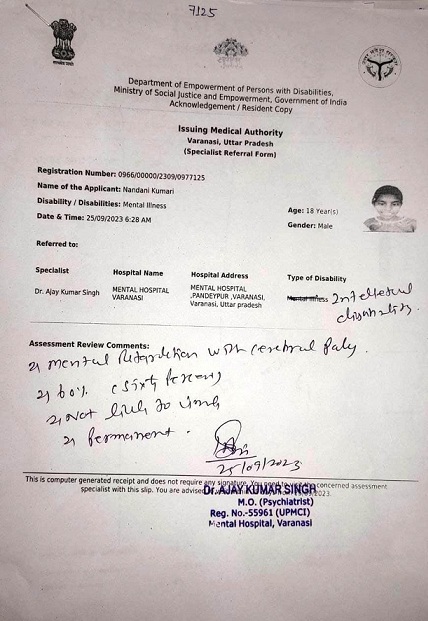 7125
Department of Empowerment of Persons with Disabilities,
Ministry of Social Justice and Empowerment, Government of India
Acknowledgement / Resident Copy
Issuing Medical Authority
Varanasi, Uttar Pradesh
(Specialist Referral Form)
Registration Number: 0966/00000/2309/0977125
Name of the Applicant: Nandani Kumari
Disability / Disabilities: Mental Illness
Age: 18 Year(s)
Date & Time: 25/09/2023 6:28 AM
Gender: Male
Referred to:
Specialist Hospital Name Hospital Address Type of Disability
Dr. Ajay Kumar Singh MENTAL HOSPITAL VARANASI MENTAL HOSPITAL ,PANDEYPUR ,VARANASI, Varanasi, Uttar pradesh Mental Illness Intellectual disability.
Assessment Review Comments:
mental Retardation with cerebral Palsy.
60% (sixty percent)
Not likely to
Permanent.
25/09/2023
This computer generated receipt and does not require any signature. You need to visit the concerned assessment
specialist with this slip. You are advised 2023.
Dr. AJAY KUMAR SINGH
M.O. (Psychiatrist)
Reg. No.-55961 (UPMCI)
Mental Hospital, Varanasi